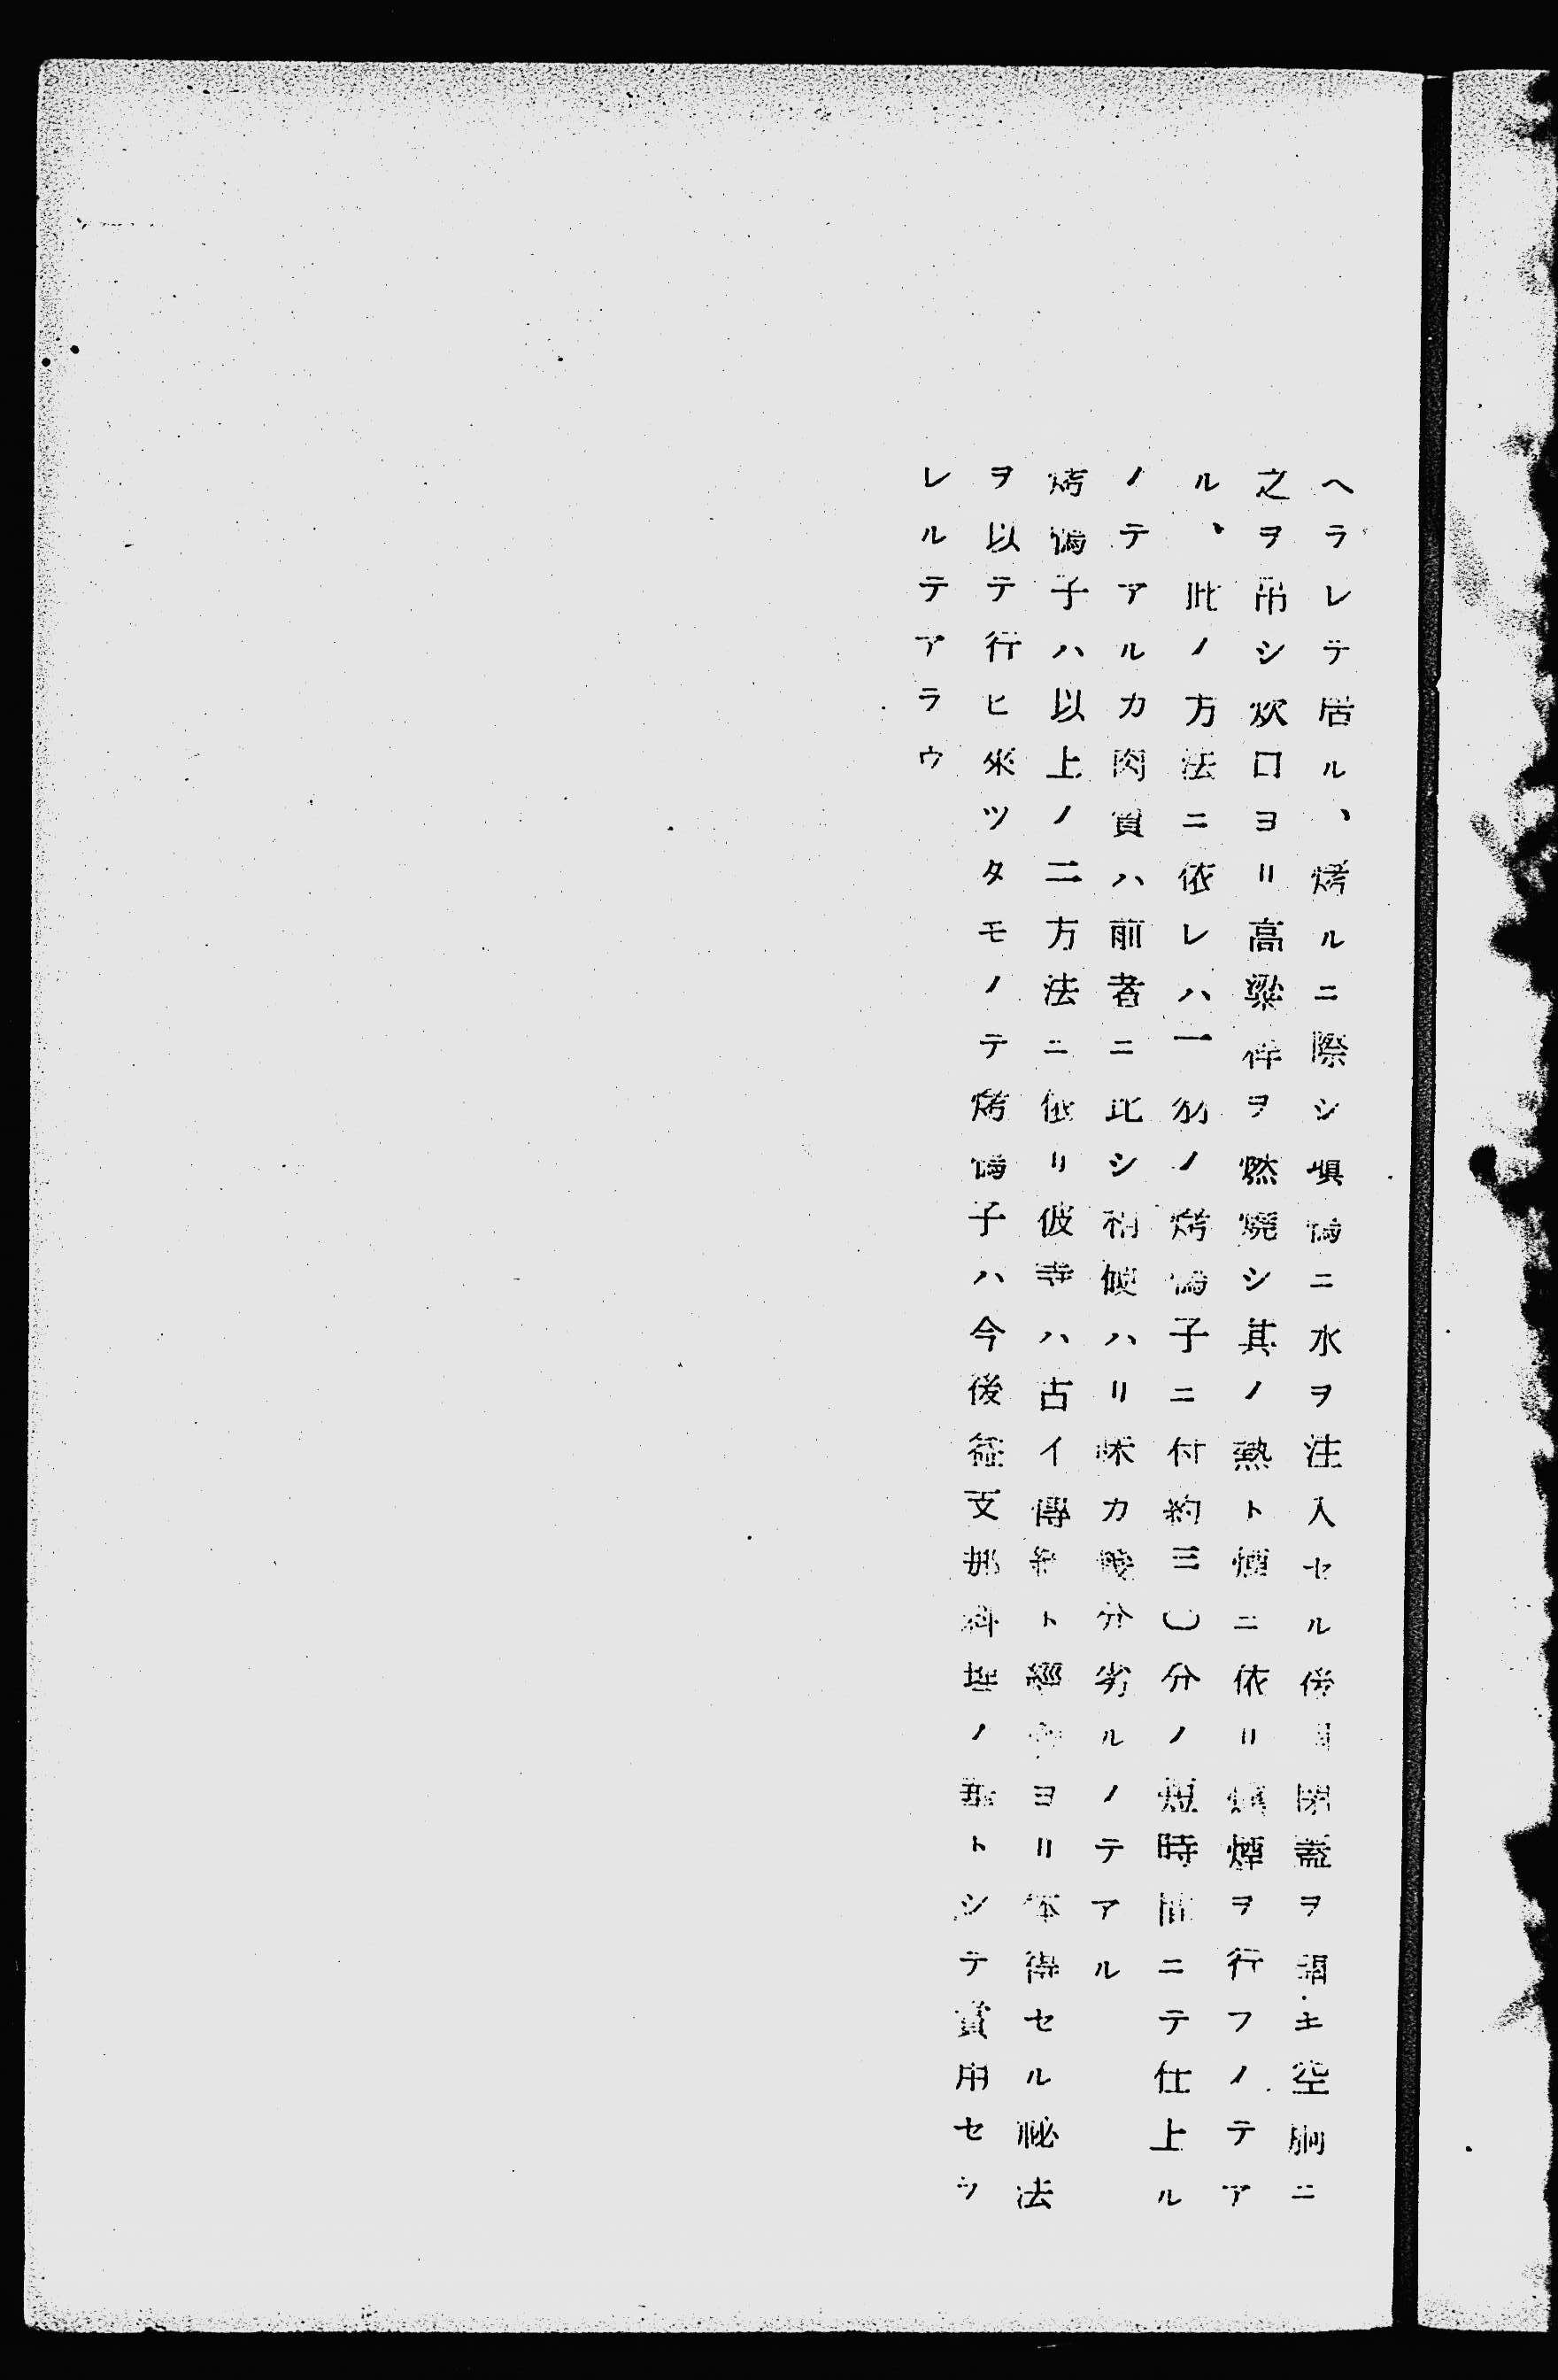 ヘラレテ居ル、烤ルニ際シ塡鴨ニ水ヲ注入セル後 閉蓋ヲ 土空胴ニ
之ヲ吊シ炊口ヨリ高粱稈ヲ燃燒シ其ノ熱ト煙ニ依リ燻煙ヲ行フノテア
ル、此ノ方法ニ依レハ一羽ノ烤鴨子ニ付約三〇分ノ短時間ニテ仕上ル
ノテアルカ肉質ハ前者ニ比シ稍硬ハリ味カ幾分劣ルノテアル
烤鴨子ハ以上ノ二方法ニ依リ彼等ハ古イ傳統ト經驗ヨリ体得セル祕法
ヲ以テ行ヒ來ツタモノテ烤鴨子ハ今後益支那料理ノ トシテ賞用セラ
レルテアラウ